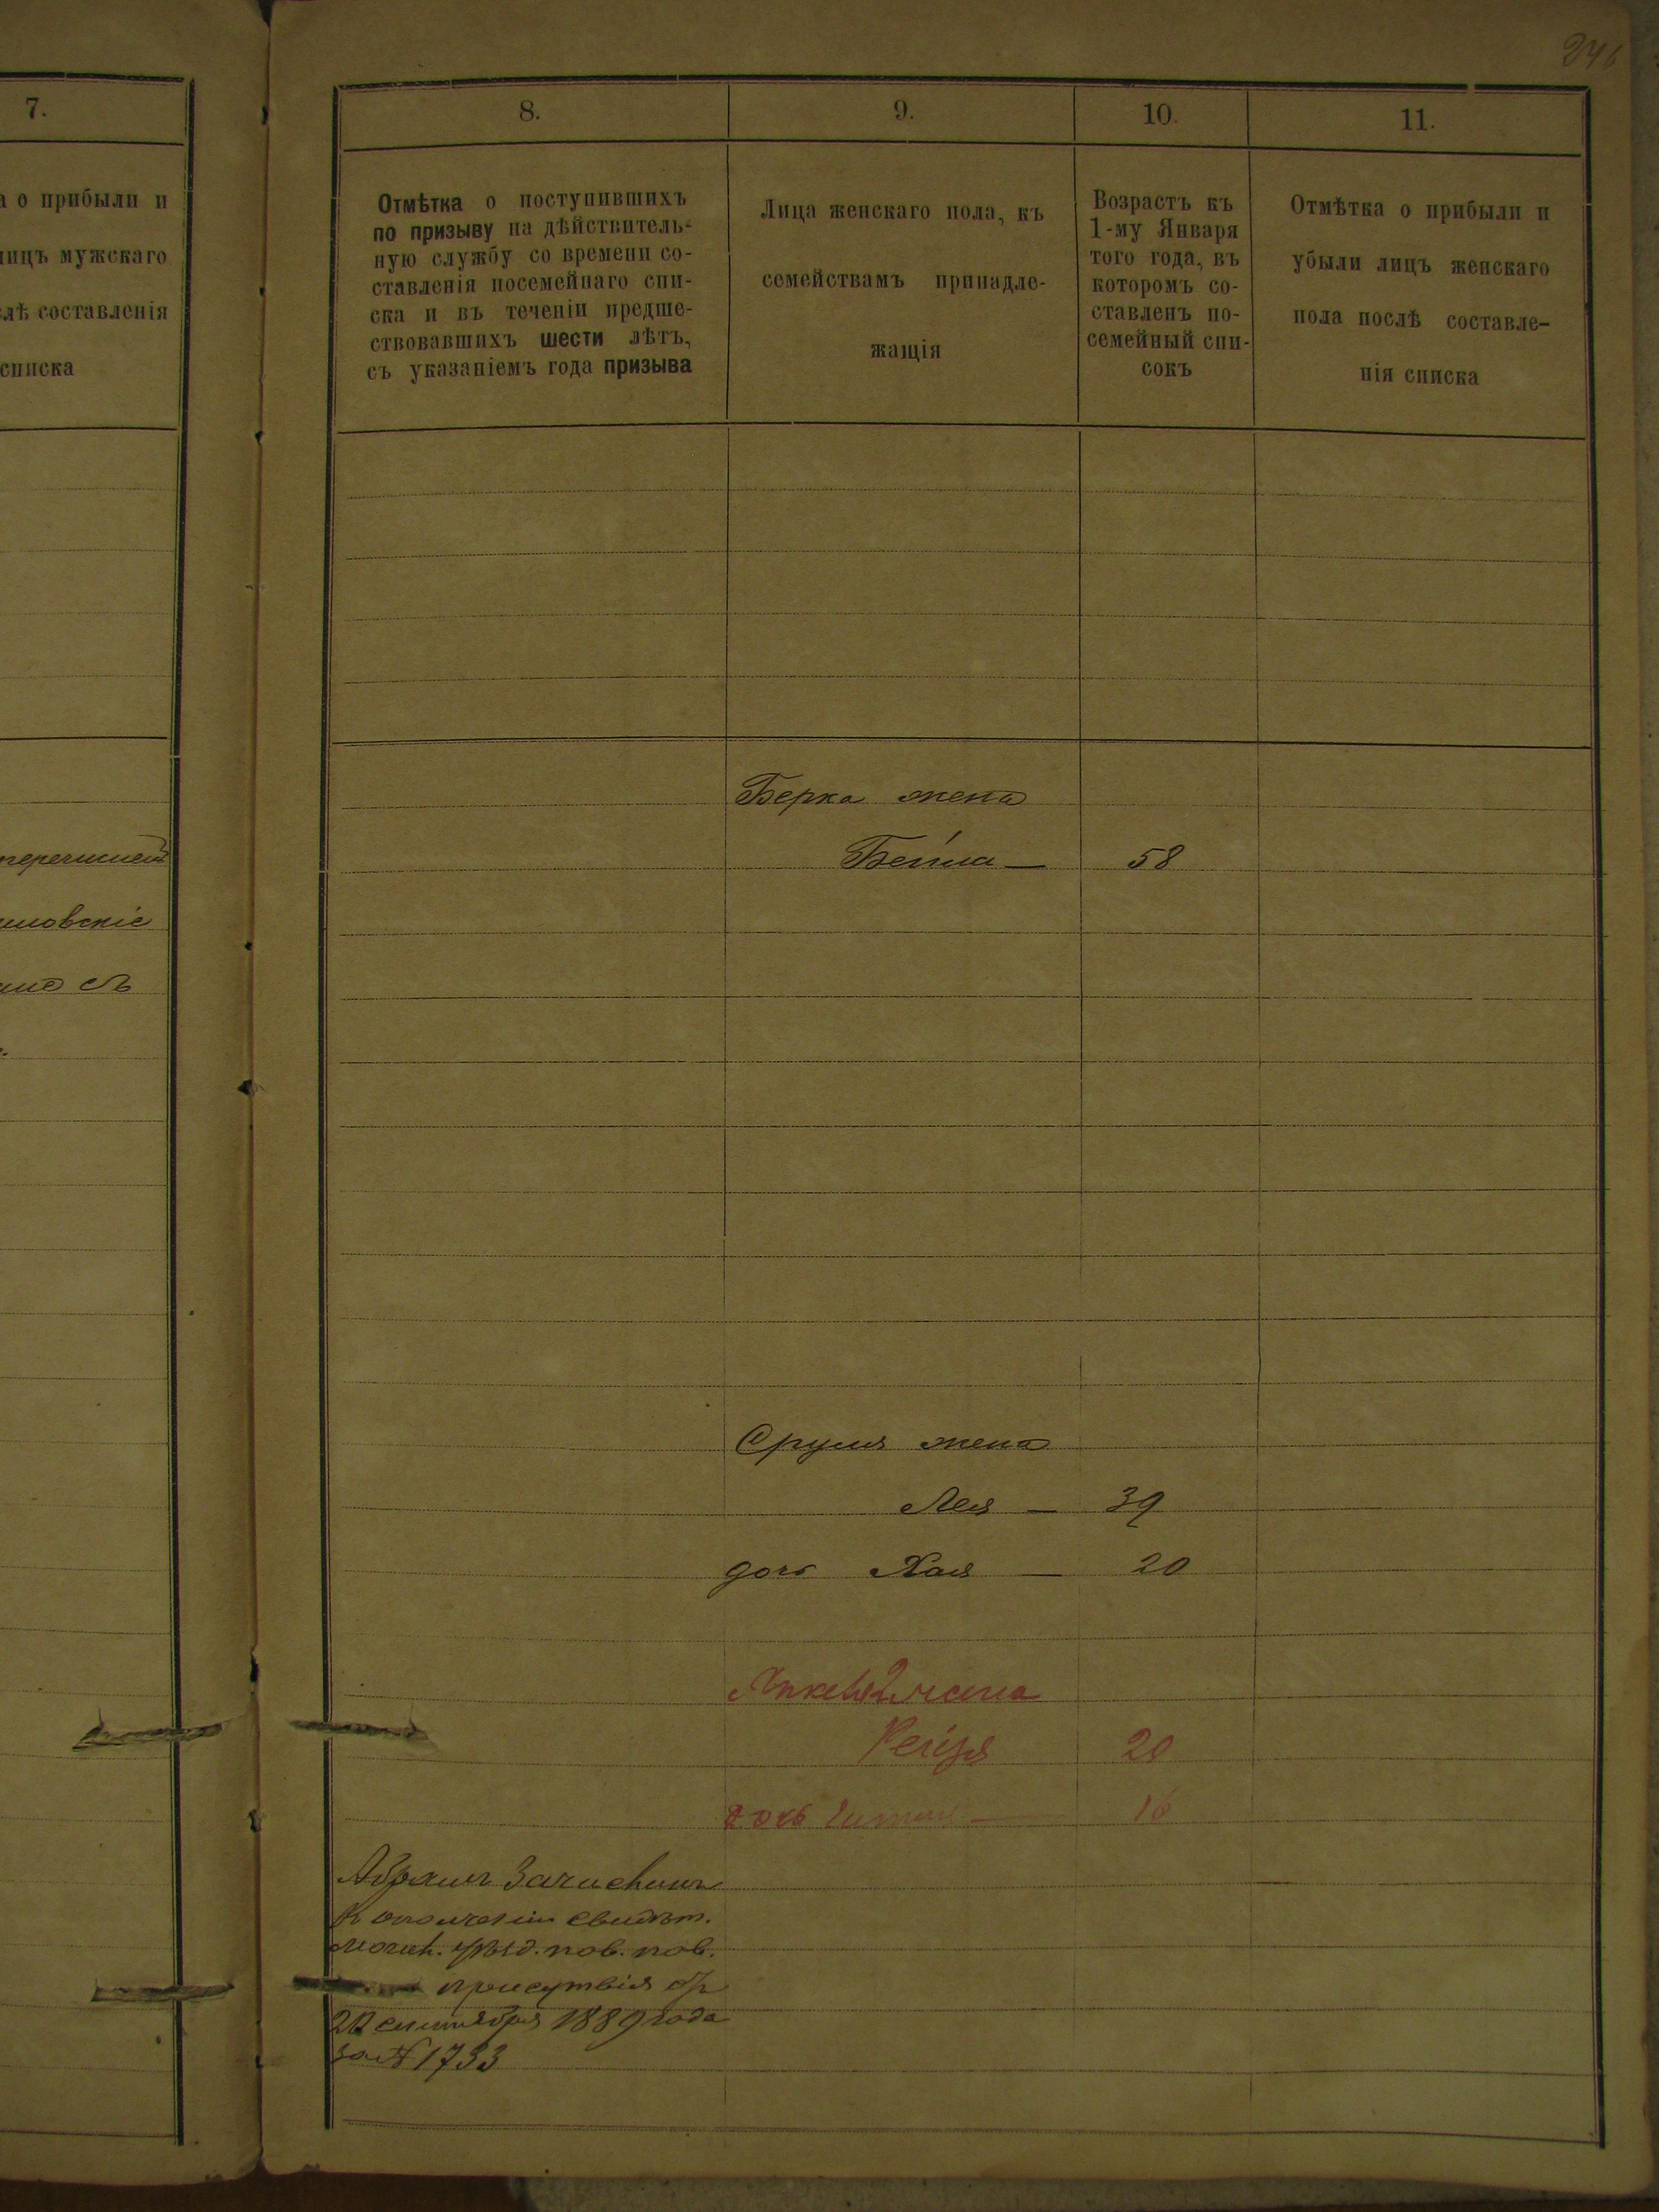 246
7.
а о прибыли и
лицъ мужскаго
слѣ составленія
списка
перечислен
иловскіе
съ
8.
9.
10.
11.
Отмѣтка о поступившихъ
по призыву на дѣйствитель-
ную службу со времени со-
ставленія посемейнаго спи-
ска и въ теченіи предше-
ствовавшихъ шести лѣтъ,
съ указаніемъ года призыва
Лица женскаго пола, къ
семействамъ принадле-
жащія
Возрастъ къ
1-му Января
того года, въ
которомъ со-
ставленъ по-
семейный спи-
сокъ
Отмѣтка о прибыли и
убыли лицъ женскаго
пола послѣ составле-
нія списка
Берка жена
Бейла — 58
Сруля жена
Лея — 39
дочь Хая — 20
Янкеля жена
Рейзя 20
дочь — 16
Абрамъ Зачисленъ
свидѣт.
Могил. уѣзд. пов. пов.
присутствія отъ
сентября 1889 года
за № 1733